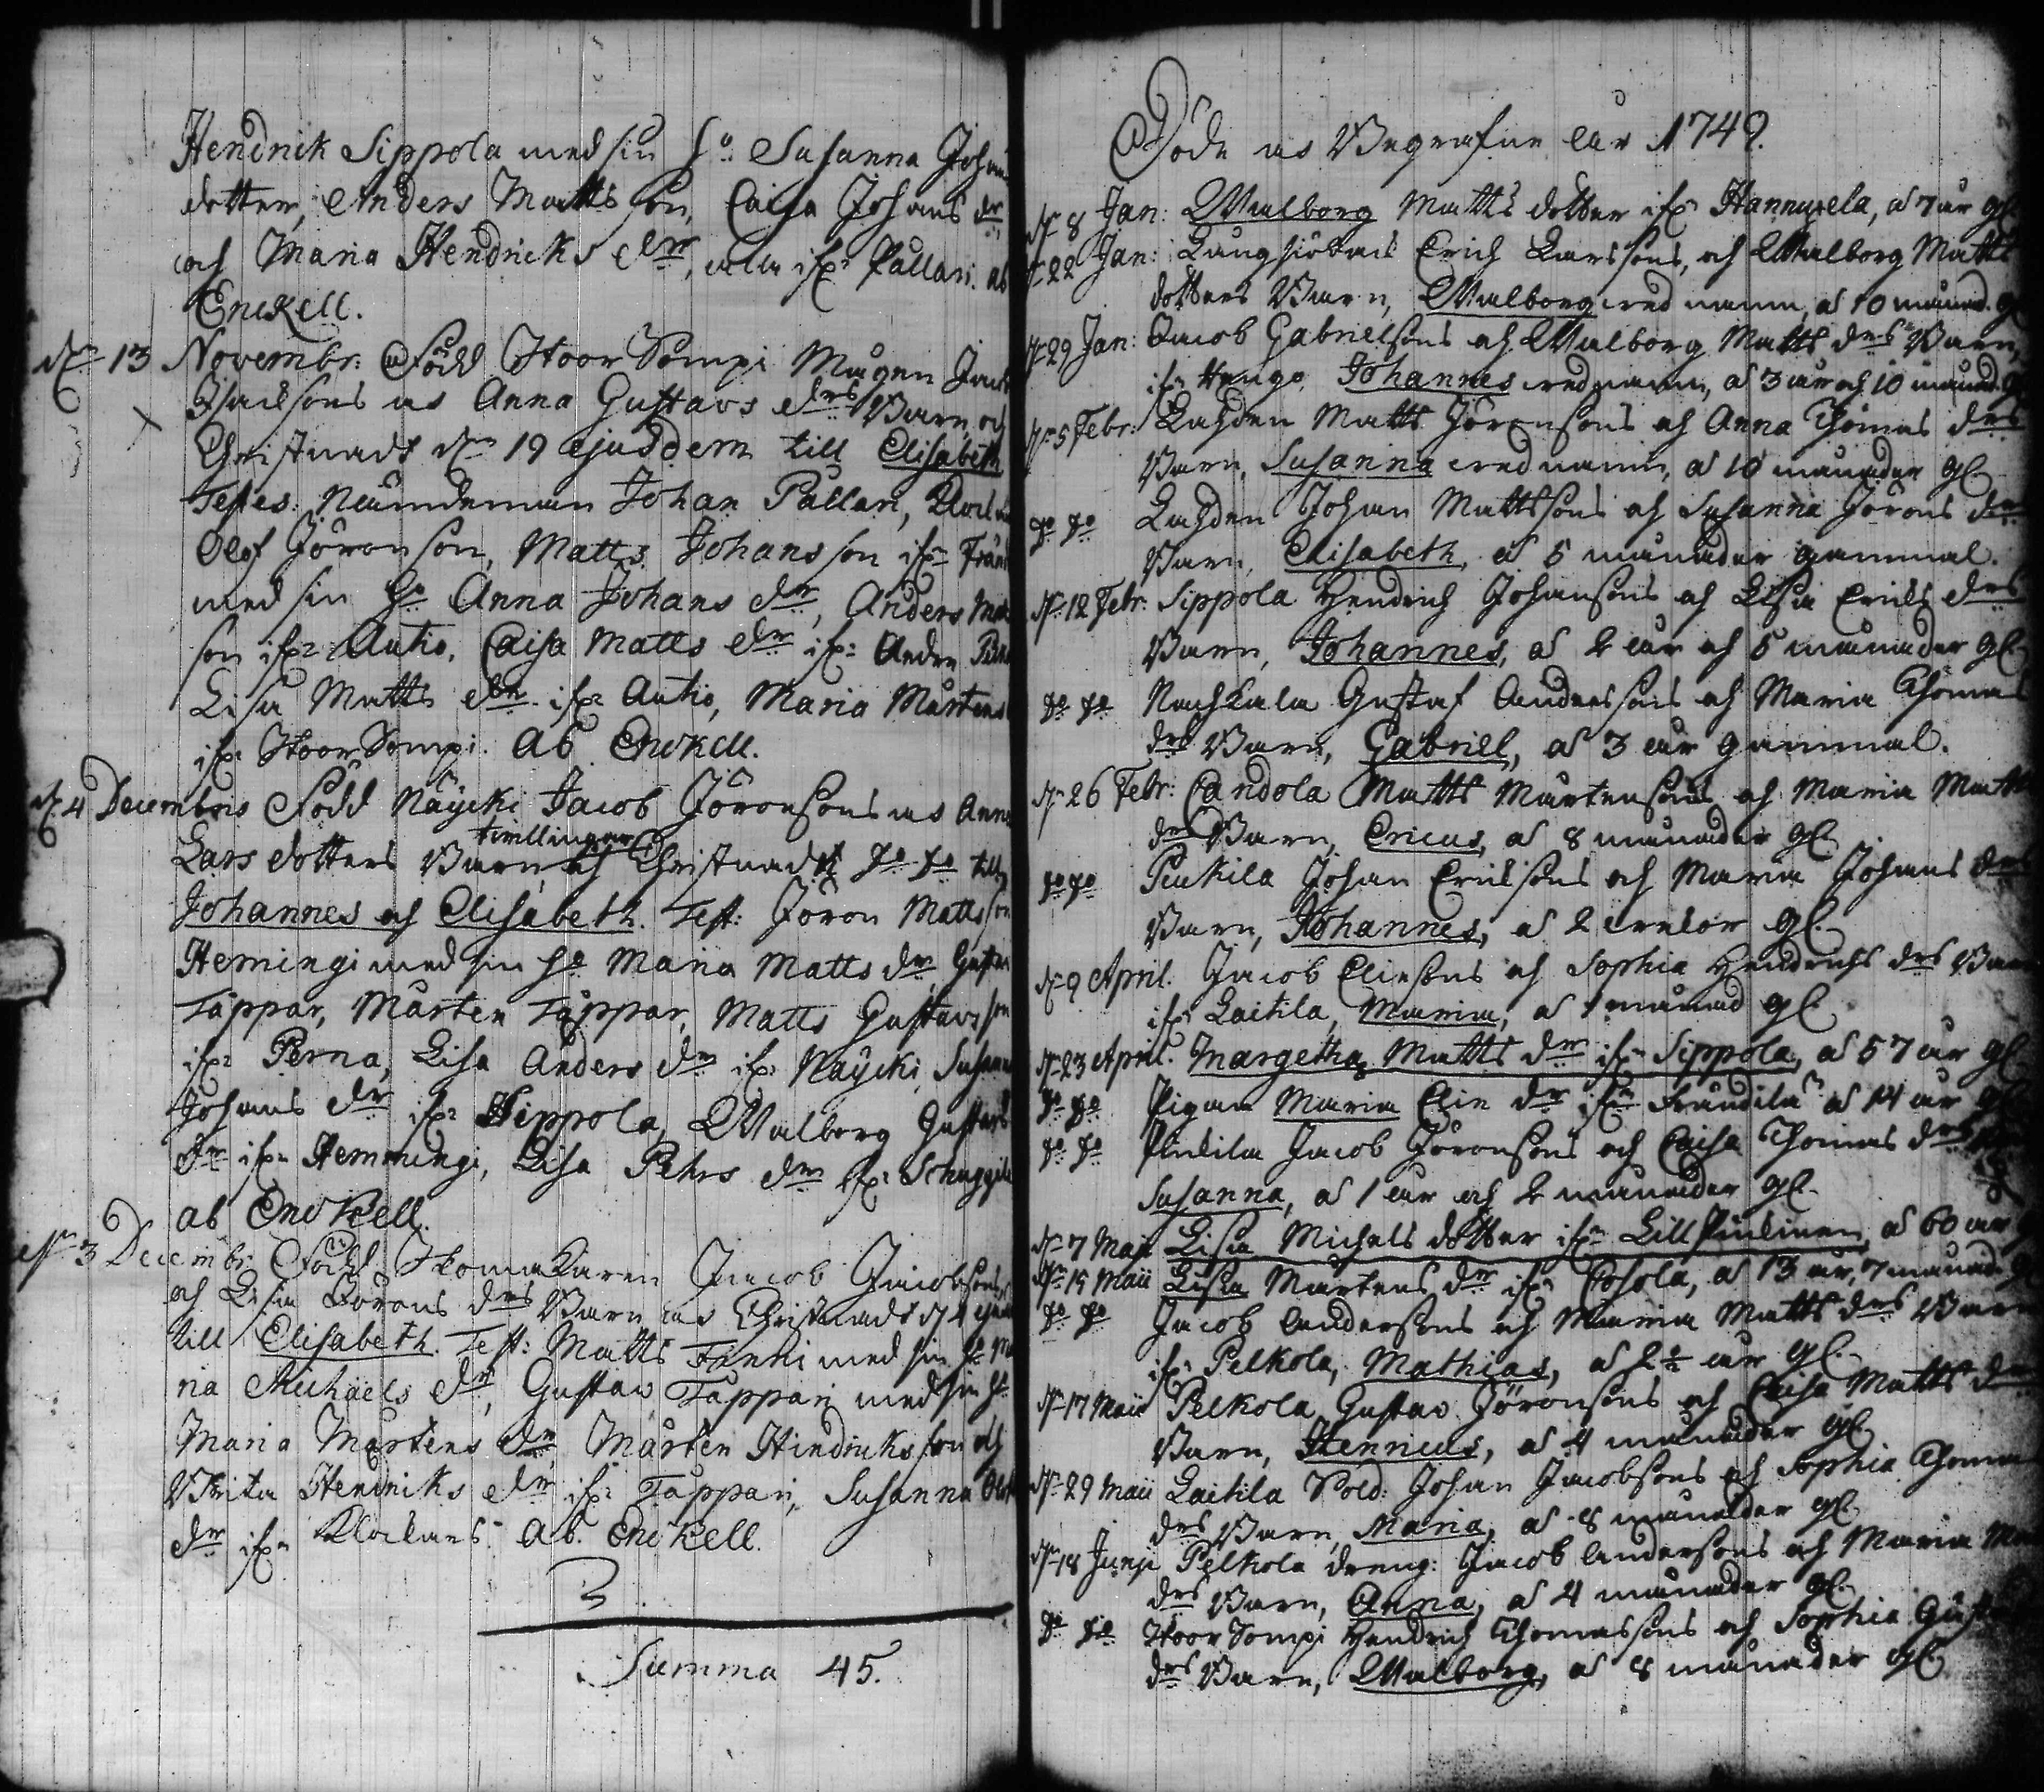 Hendrik Sippola med sin h:o Susanna Joha
dotter, Anders Matts son, Caisa Johans dr
och Maria Hendricks dr, alla ifr. Pållari. ab
Enckell.
dn 13 Novembr. Född StoorSompi Mågen Jacob
Isacsons ac Anna Gustavs drs Barn och
Christnadt dn 19 ejusdem till Elisabeth
Testes. Nämdeman Johan Pallari,
Olof Jöranson, Matts Johansson ifr.
med sin ho Anna Johans dr, Anders
son ifr. Autio, Caisa Matts dr ifr.
Lisa Matts dr ifr. Autio, Maria Mårtens
ifr. StoorSompi. Ab Enckell.
d. 4 Decembris Född Näÿcki Jacob Jöransons ac Anna
tvillingar
Lars dotters Barn, och Christnadt do do till
Johannes och Elisabeth. Test: Jöran Matts son
Hemingi med sin ho Maria Matts dr,
Tappar, Mårten Tappar, Matts Gustavs son
ifr. Perna, Lisa Anders dr ifr. Naÿcki, Susanna
Johans dr ifr. Sippola, Walborg Gustavs
dr ifr. Hemmingi, Lisa Pehrs dr ifr.
ab Enckell.
dn 3 Decembr. Född Skomakaren Jacob Jacobsons
och Lisa Görans drs Barn ac Christnadt d 4
till Elisabeth. Test: Matts Fanni med sin ho Ma
ria Michaels dr, Gustav Tappari med sin ho
Maria Mårtens dr, Mårten Hindricks son och
Brita Hendriks dr ifr. Tappari, Susanna
dr ifr. Klockars. Ab. Enckell.
3
Summa 45.
Döde ac Begrafne åhr 1749.
dn 8 Jan: Walborg Matts dotter ifr. Hannuxela, a 7 år gl.
d. 22 Jan: Erich Larssons, och Walborg Matts
dotters Barn, Walborg vid namn, a 10 månad. gl
dn 29 Jan: Jacob Gabrielsons och Walborg Matts drs Barn,
ifr. Haugo, Johannes vid namn, a 3 år och 10 månad. gl
dn 5 Febr: Lahden Matts Jöransons och Anna Thomas drs
Barn, Susanna vid namn, a 10 månader gl.
do do Lahden Johan Mattssons och Susanna Jörans drs
Barn, Elisabeth, a 5 månader gammal.
dn 12 Febr: Sippola Hendrich Johansons och Lisa Erichs drs
Barn, Johannes, a 2 år och 5 månader gl.
do do Nachkala Gustaf Anderssons och Maria Thomas
drs Barn, Gabriel, a 3 år gammal.
dn 26 Febr: Candola Matts Mårtensons och Maria Matts
drs Barn, Ericus, a 8 månader gl.
do do Penkila Johan Ericssons och Maria Johans drs
Barn, Johannes, a 2 veckor gl.
dn 9 April. Jacob Eliesons och Sophia Hendrichs drs Barn
ifr. Laitila, Maria, a 1 månad gl.
dn 23 April. Margetha Matts dr ifr. Sippola, a 57 år gl
do do Pigan Maria Elin dr ifr. Frändilä a 14 år gl
do do Jacob Jöransons och Caisa Thomas drs
Susanna, a 1 år och 2 månader gl.
dn 7 Maji Lisa Michels dotter ifr. Lill Piulinen, a 60 år
dn 15 Maii Lisa Mårtens dr ifr. Cosola, a 13 år, 7 månad. gl
do do Jacob Andersons och Maria Matts drs Barn
ifr. Pelkola, Mathias, a 2½ år gl.
dn 17 Maii Pelkola Gustav Jöransons och Caisa Matts drs
Barn, Henricus, a 4 månader gl.
dn 29 Maii Laitila Sold: Johan Jacobsons och Sophia Thomas
drs Barn, Maria, a 8 månader gl.
dn 18 Junji Pelkola dreng: Jacob Andersons och Maria
drs Barn, Anna, a 4 månader gl.
do do StoorSompi Hendrich Thomassons och Sophia
drs Barn, Walborg, a 8 månader gl.